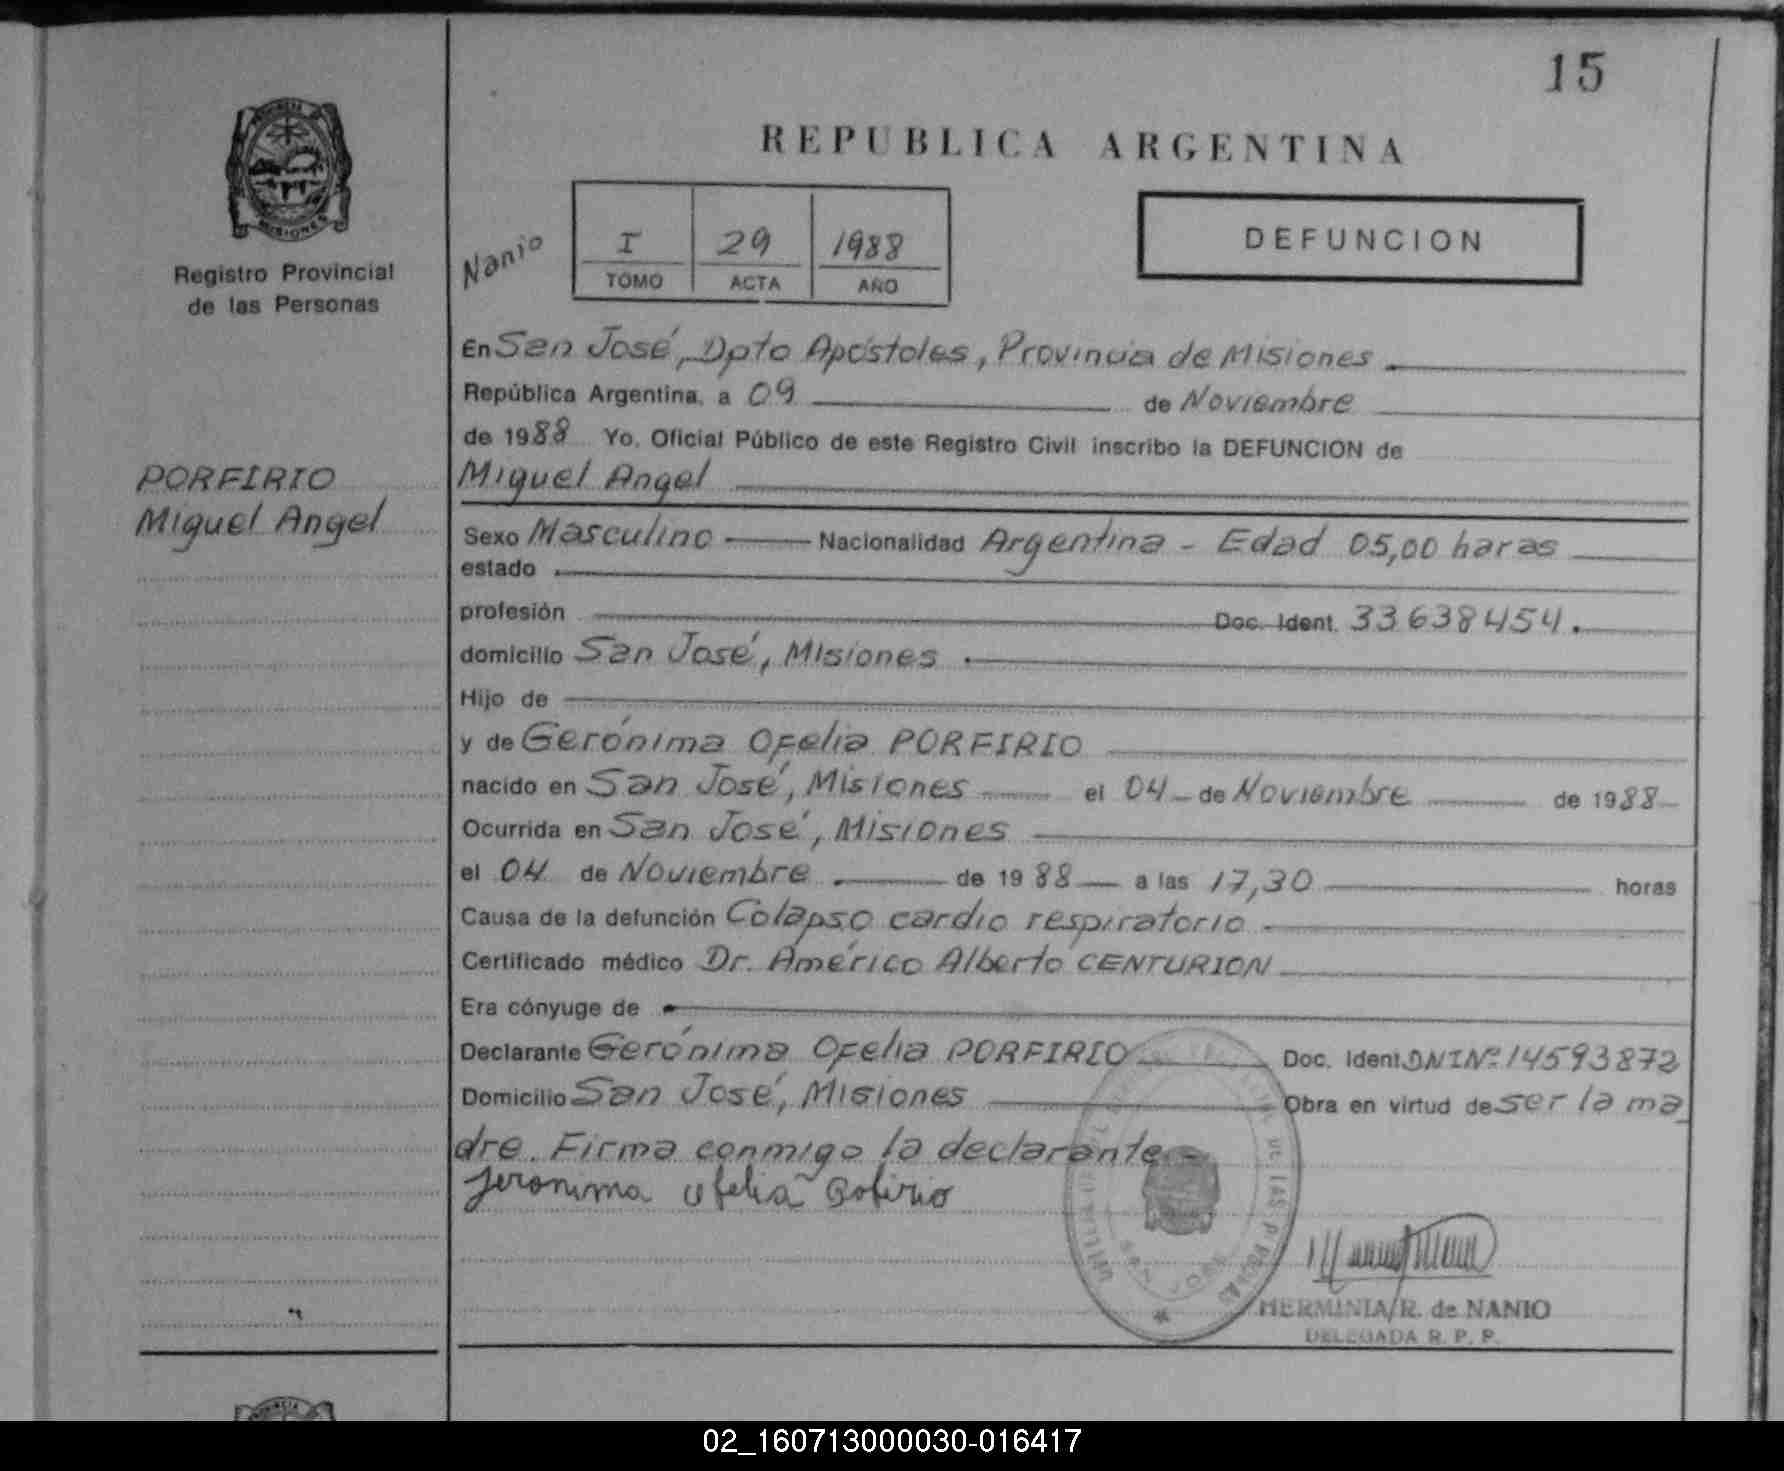 15
REPUBLICA ARGENTINA
PROVINCIA
MISIONES
Registro Provincial
de las Personas
Nanio
I 29 1988
TOMO ACTA AÑO
DEFUNCION
En San José, Dpto Apóstoles, Provincia de Misiones
República Argentina, a 09 de Noviembre
de 1988 Yo, Oficial Público de este Registro Civil inscribo la DEFUNCION de
PORFIRIO
Miguel Angel
Miguel Angel
Sexo Masculino Nacionalidad Argentina - Edad 05,00 horas
estado
profesión Doc. Ident. 33638454.
domicilio San José, Misiones.
Hijo de
y de Gerónima Ofelia PORFIRIO
nacido en San José, Misiones el 04 de Noviembre de 1988
Ocurrida en San José, Misiones
el 04 de Noviembre de 1988 a las 17,30 horas
Causa de la defunción Colapso cardio respiratorio
Certificado médico Dr. Américo Alberto CENTURION
Era cónyuge de
Declarante Gerónima Ofelia PORFIRIO Doc. Ident. DNI Nº 14593872
Domicilio San José, Misiones Obra en virtud de ser la ma
dre. Firma conmigo la declarante
Jeronima Ofelia Pofirio
SAN JOSE
HERMINIA R. de NANIO
DELEGADA R. P. P.
PROVINCIA
02_160713000030-016417